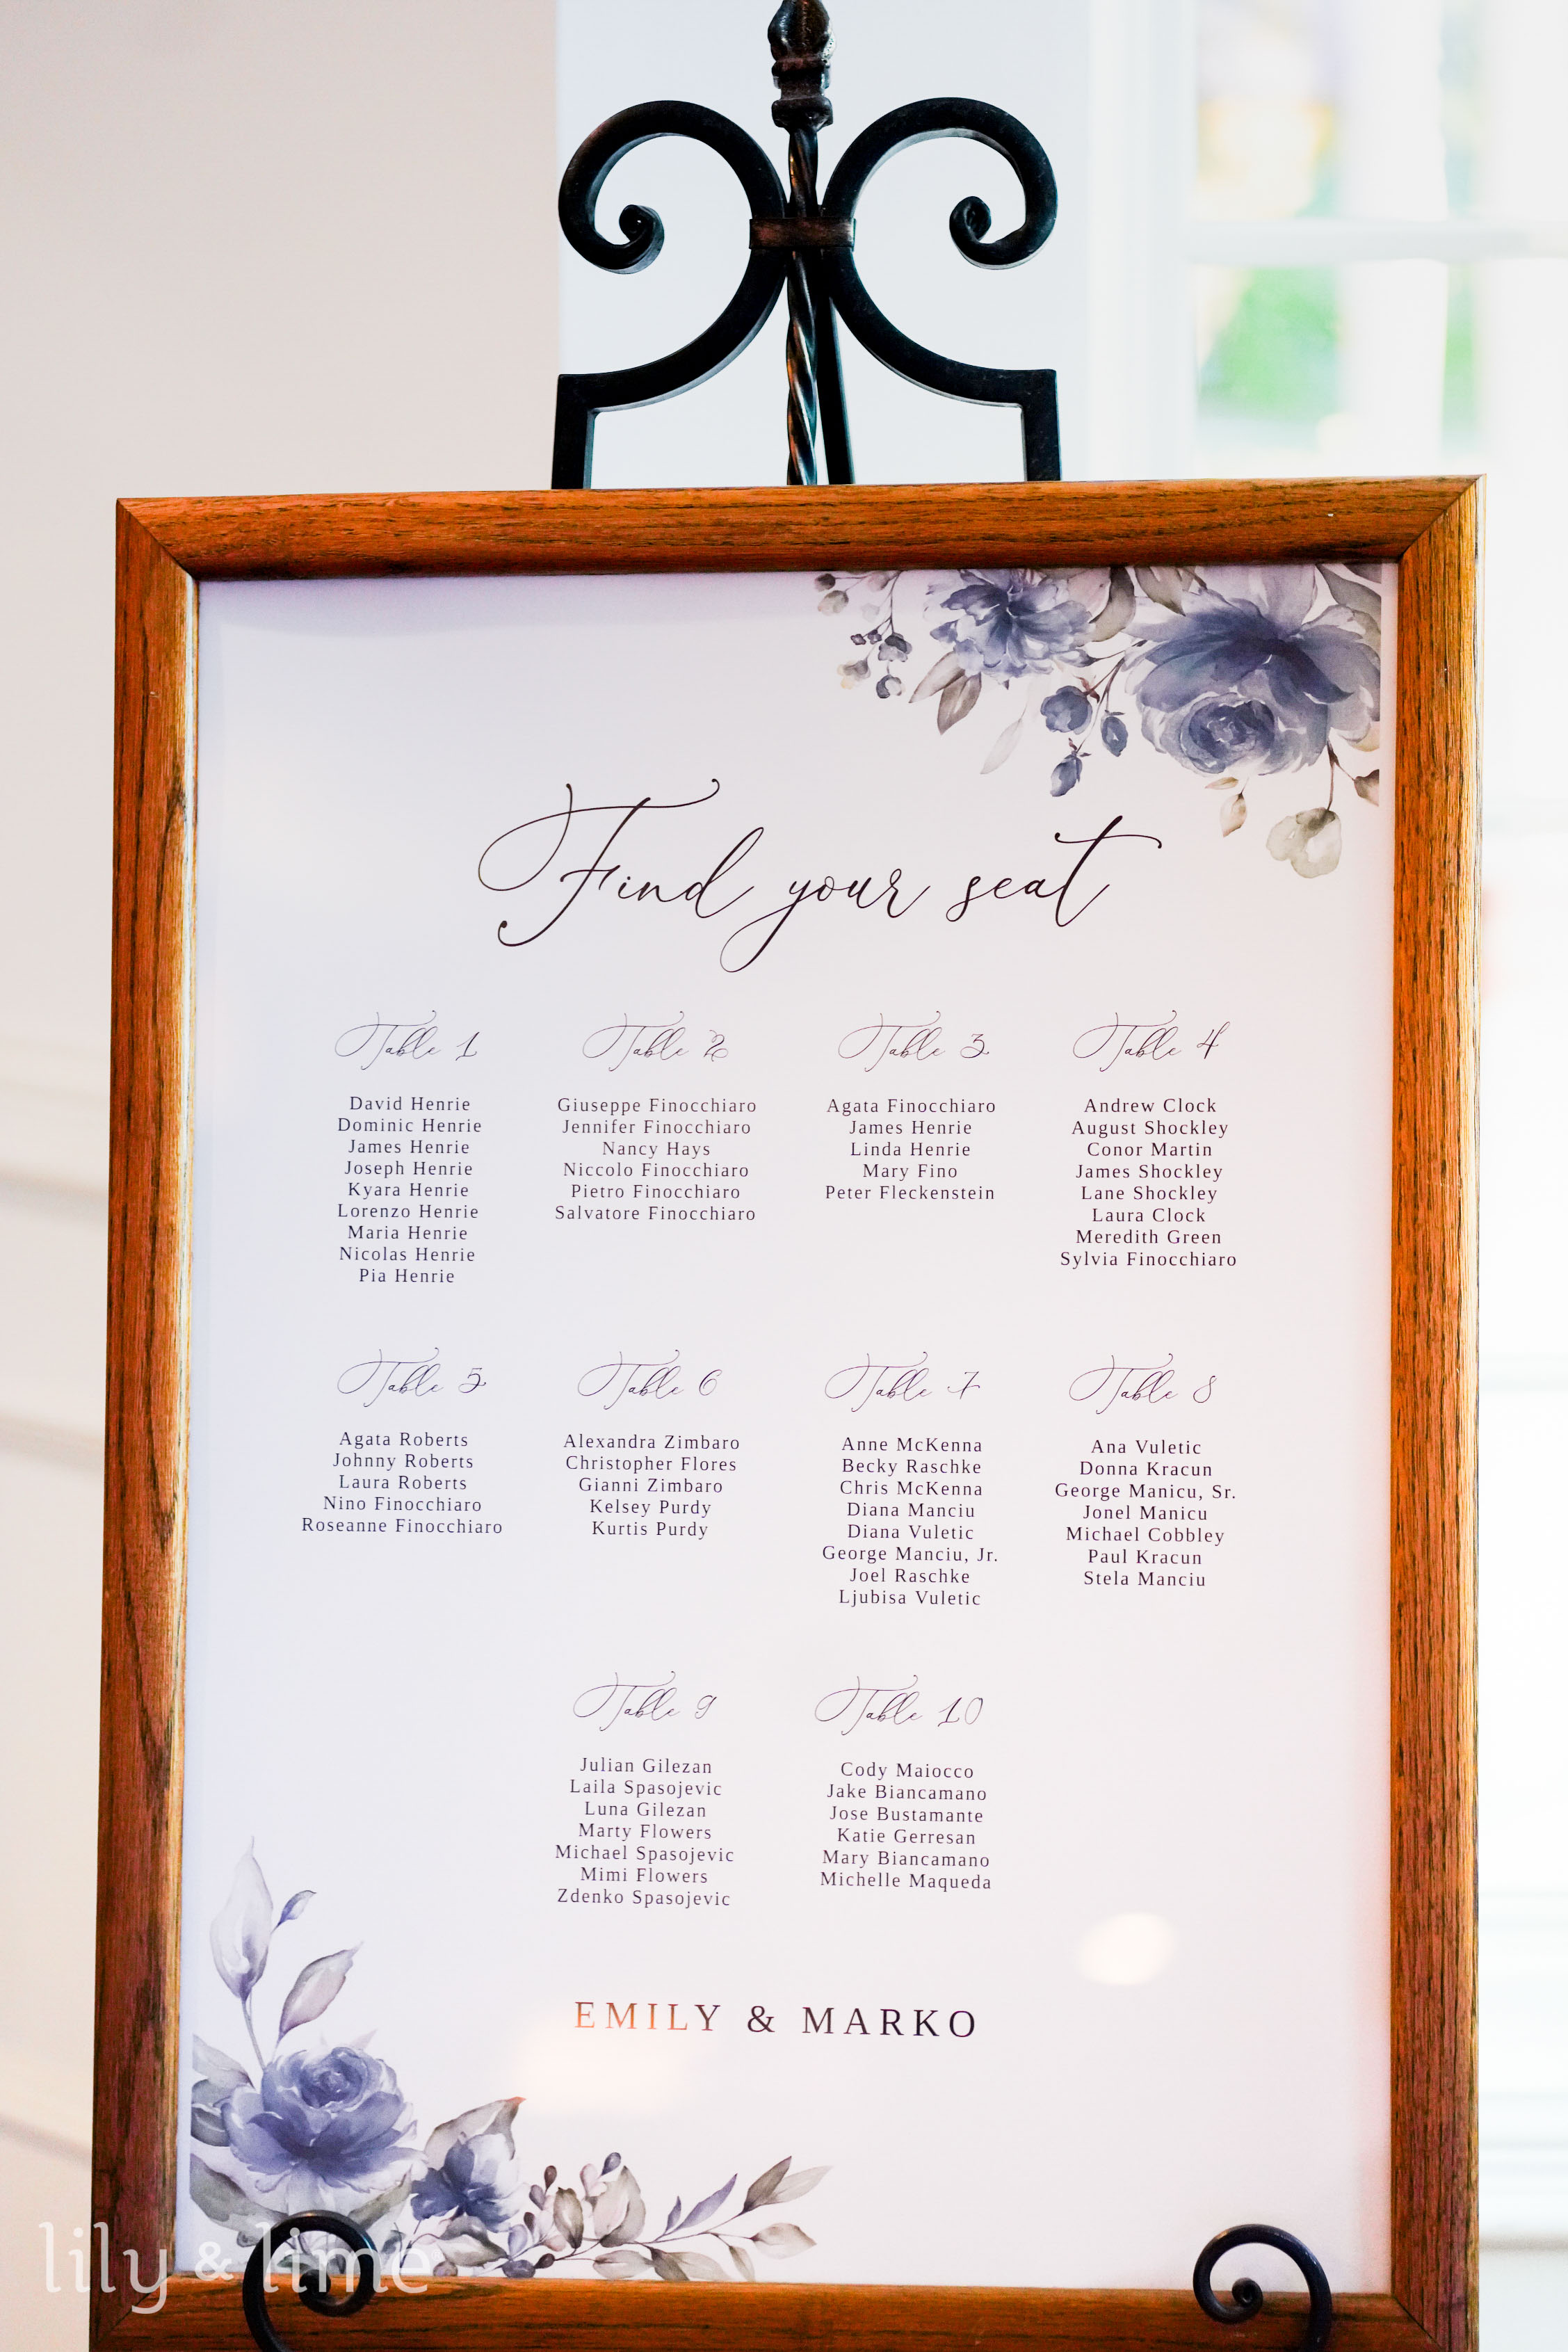 Find your seat
Table 1
David Henrie
Dominic Henrie
James Henrie
Joseph Henrie
Kyara Henrie
Lorenzo Henrie
Maria Henrie
Nicolas Henrie
Pia Henrie
Table 2
Giuseppe Finocchiaro
Jennifer Finocchiaro
Nancy Hays
Niccolo Finocchiaro
Pietro Finocchiaro
Salvatore Finocchiaro
Table 3
Agata Finocchiaro
James Henrie
Linda Henrie
Mary Fino
Peter Fleckenstein
Table 4
Andrew Clock
August Shockley
Conor Martin
James Shockley
Lane Shockley
Laura Clock
Meredith Green
Sylvia Finocchiaro
Table 5
Agata Roberts
Johnny Roberts
Laura Roberts
Nino Finocchiaro
Roseanne Finocchiaro
Table 6
Alexandra Zimbaro
Christopher Flores
Gianni Zimbaro
Kelsey Purdy
Kurtis Purdy
Table 7
Anne McKenna
Becky Raschke
Chris McKenna
Diana Manciu
Diana Vuletic
George Manciu, Jr.
Joel Raschke
Ljubisa Vuletic
Table 8
Ana Vuletic
Donna Kracun
George Manicu, Sr.
Jonel Manicu
Michael Cobbley
Paul Kracun
Stela Manciu
Table 9
Julian Gilezan
Laila Spasojevic
Luna Gilezan
Marty Flowers
Michael Spasojevic
Mimi Flowers
Zdenko Spasojevic
Table 10
Cody Maiocco
Jake Biancamano
Jose Bustamante
Katie Gerresan
Mary Biancamano
Michelle Maqueda
EMILY & MARKO
lily & lime